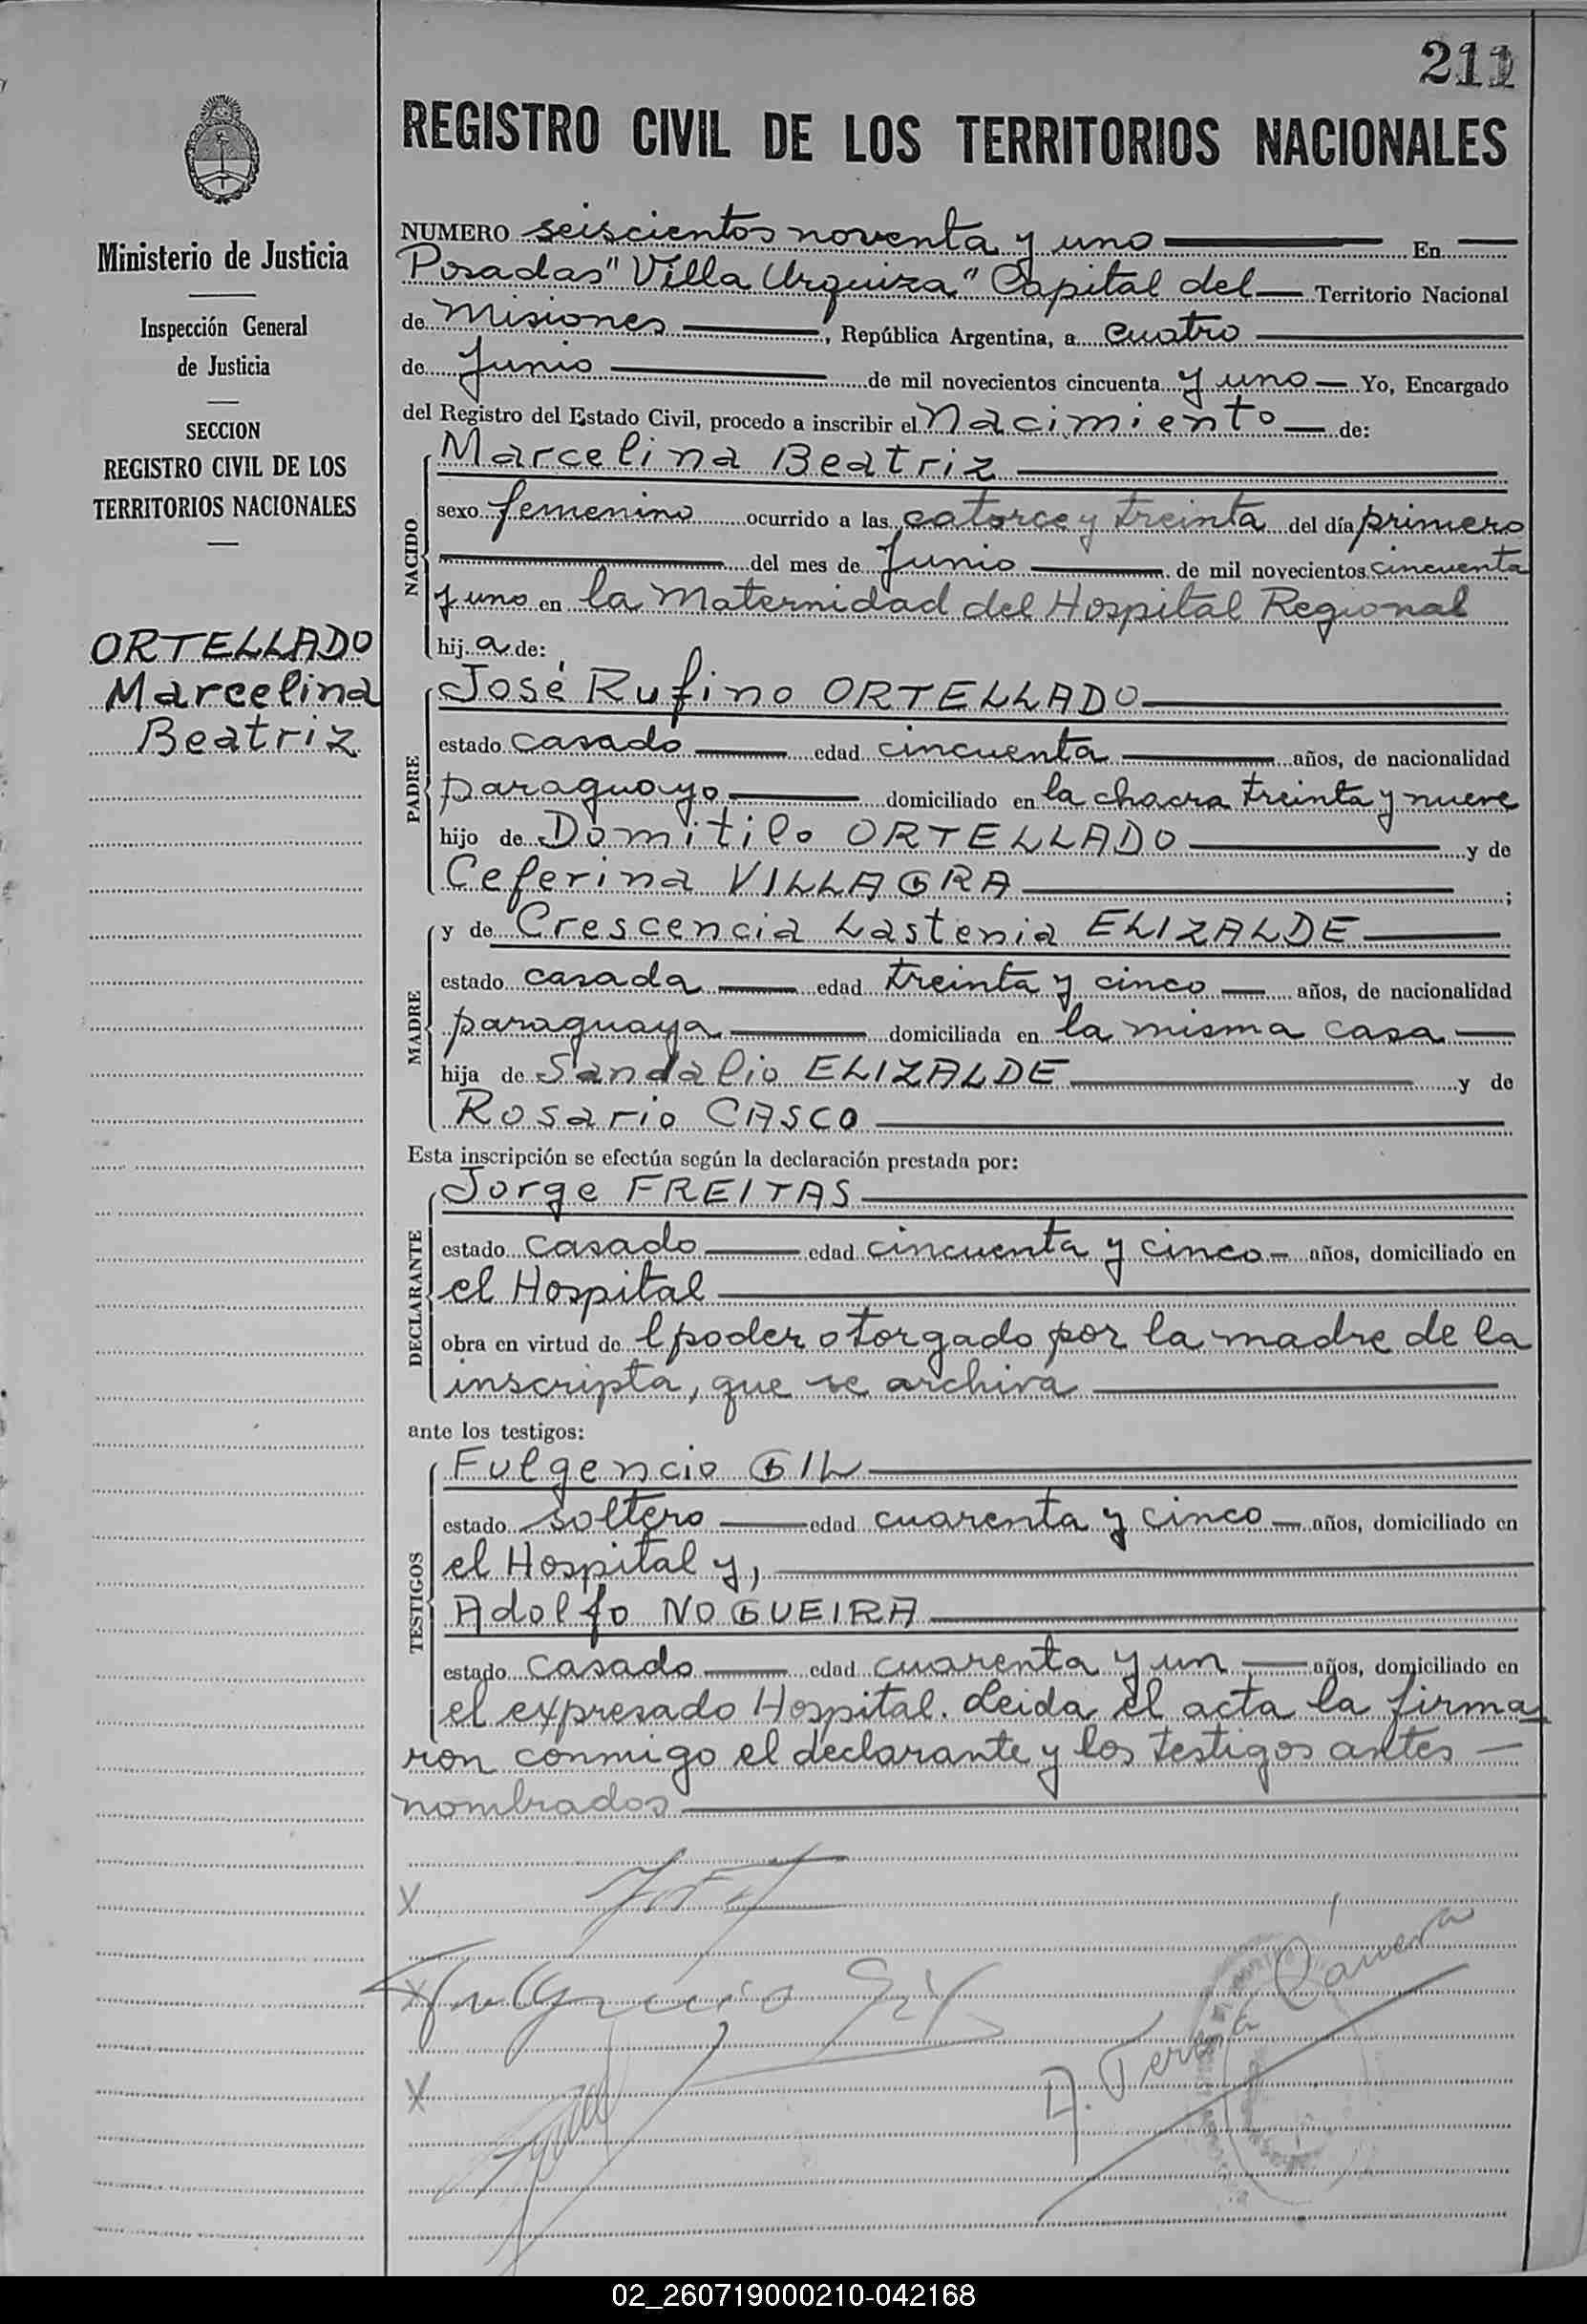 211
REGISTRO CIVIL DE LOS TERRITORIOS NACIONALES
Ministerio de Justicia
Inspección General
de Justicia
SECCION
REGISTRO CIVIL DE LOS
TERRITORIOS NACIONALES
ORTELLADO
Marcelina
Beatriz
NUMERO seiscientos noventa y uno En
Posadas "Villa Urquiza" Capital del Territorio Nacional
de Misiones, República Argentina, a cuatro
de Junio de mil novecientos cincuenta y uno Yo, Encargado
del Registro del Estado Civil, procedo a inscribir el Nacimiento de:
NACIDO
Marcelina Beatriz
sexo femenino ocurrido a las catorce y treinta del día primero
del mes de Junio de mil novecientos cincuenta
y uno en la Maternidad del Hospital Regional
hij a de:
PADRE
José Rufino ORTELLADO
estado casado edad cincuenta años, de nacionalidad
paraguayo domiciliado en la chacra treinta y nueve
hijo de Domitilo ORTELLADO y de
Ceferina VILLAGRA ;
MADRE
y de Crescencia Lastenia ELIZALDE
estado casada edad treinta y cinco años, de nacionalidad
paraguaya domiciliada en la misma casa
hija de Sandalio ELIZALDE y de
Rosario CASCO
Esta inscripción se efectúa según la declaración prestada por:
DECLARANTE
Jorge FREITAS
estado casado edad cincuenta y cinco años, domiciliado en
el Hospital
obra en virtud de l poder otorgado por la madre de la
inscripta, que se archiva
ante los testigos:
TESTIGOS
Fulgencio GIL
estado soltero edad cuarenta y cinco años, domiciliado en
el Hospital y,
Adolfo NOGUEIRA
estado casado edad cuarenta y un años, domiciliado en
el expresado Hospital. Leida el acta la firma
ron conmigo el declarante y los testigos antes
nombrados
X
X Fulgencio Gil
X
A. Teresa
02_260719000210-042168